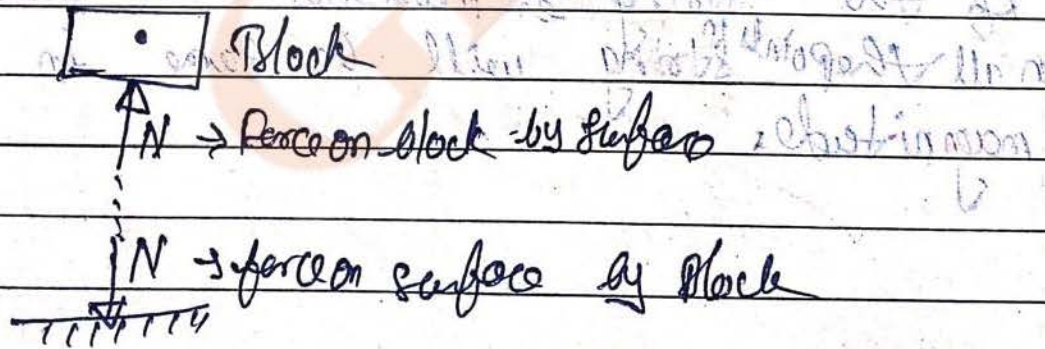 Block
N → Force on block by surface
N → force on surface by Block